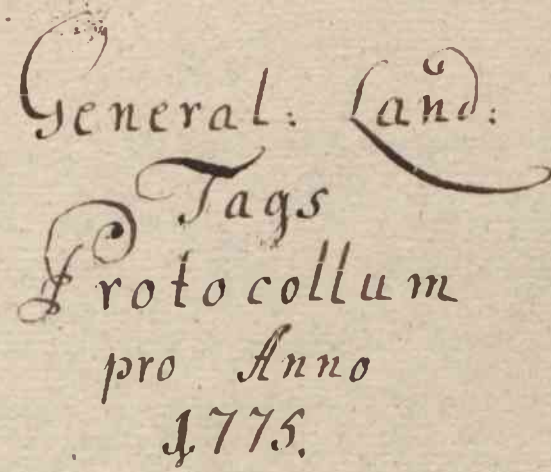 General: Land:
Tags
Protocollum
pro Anno
1775.